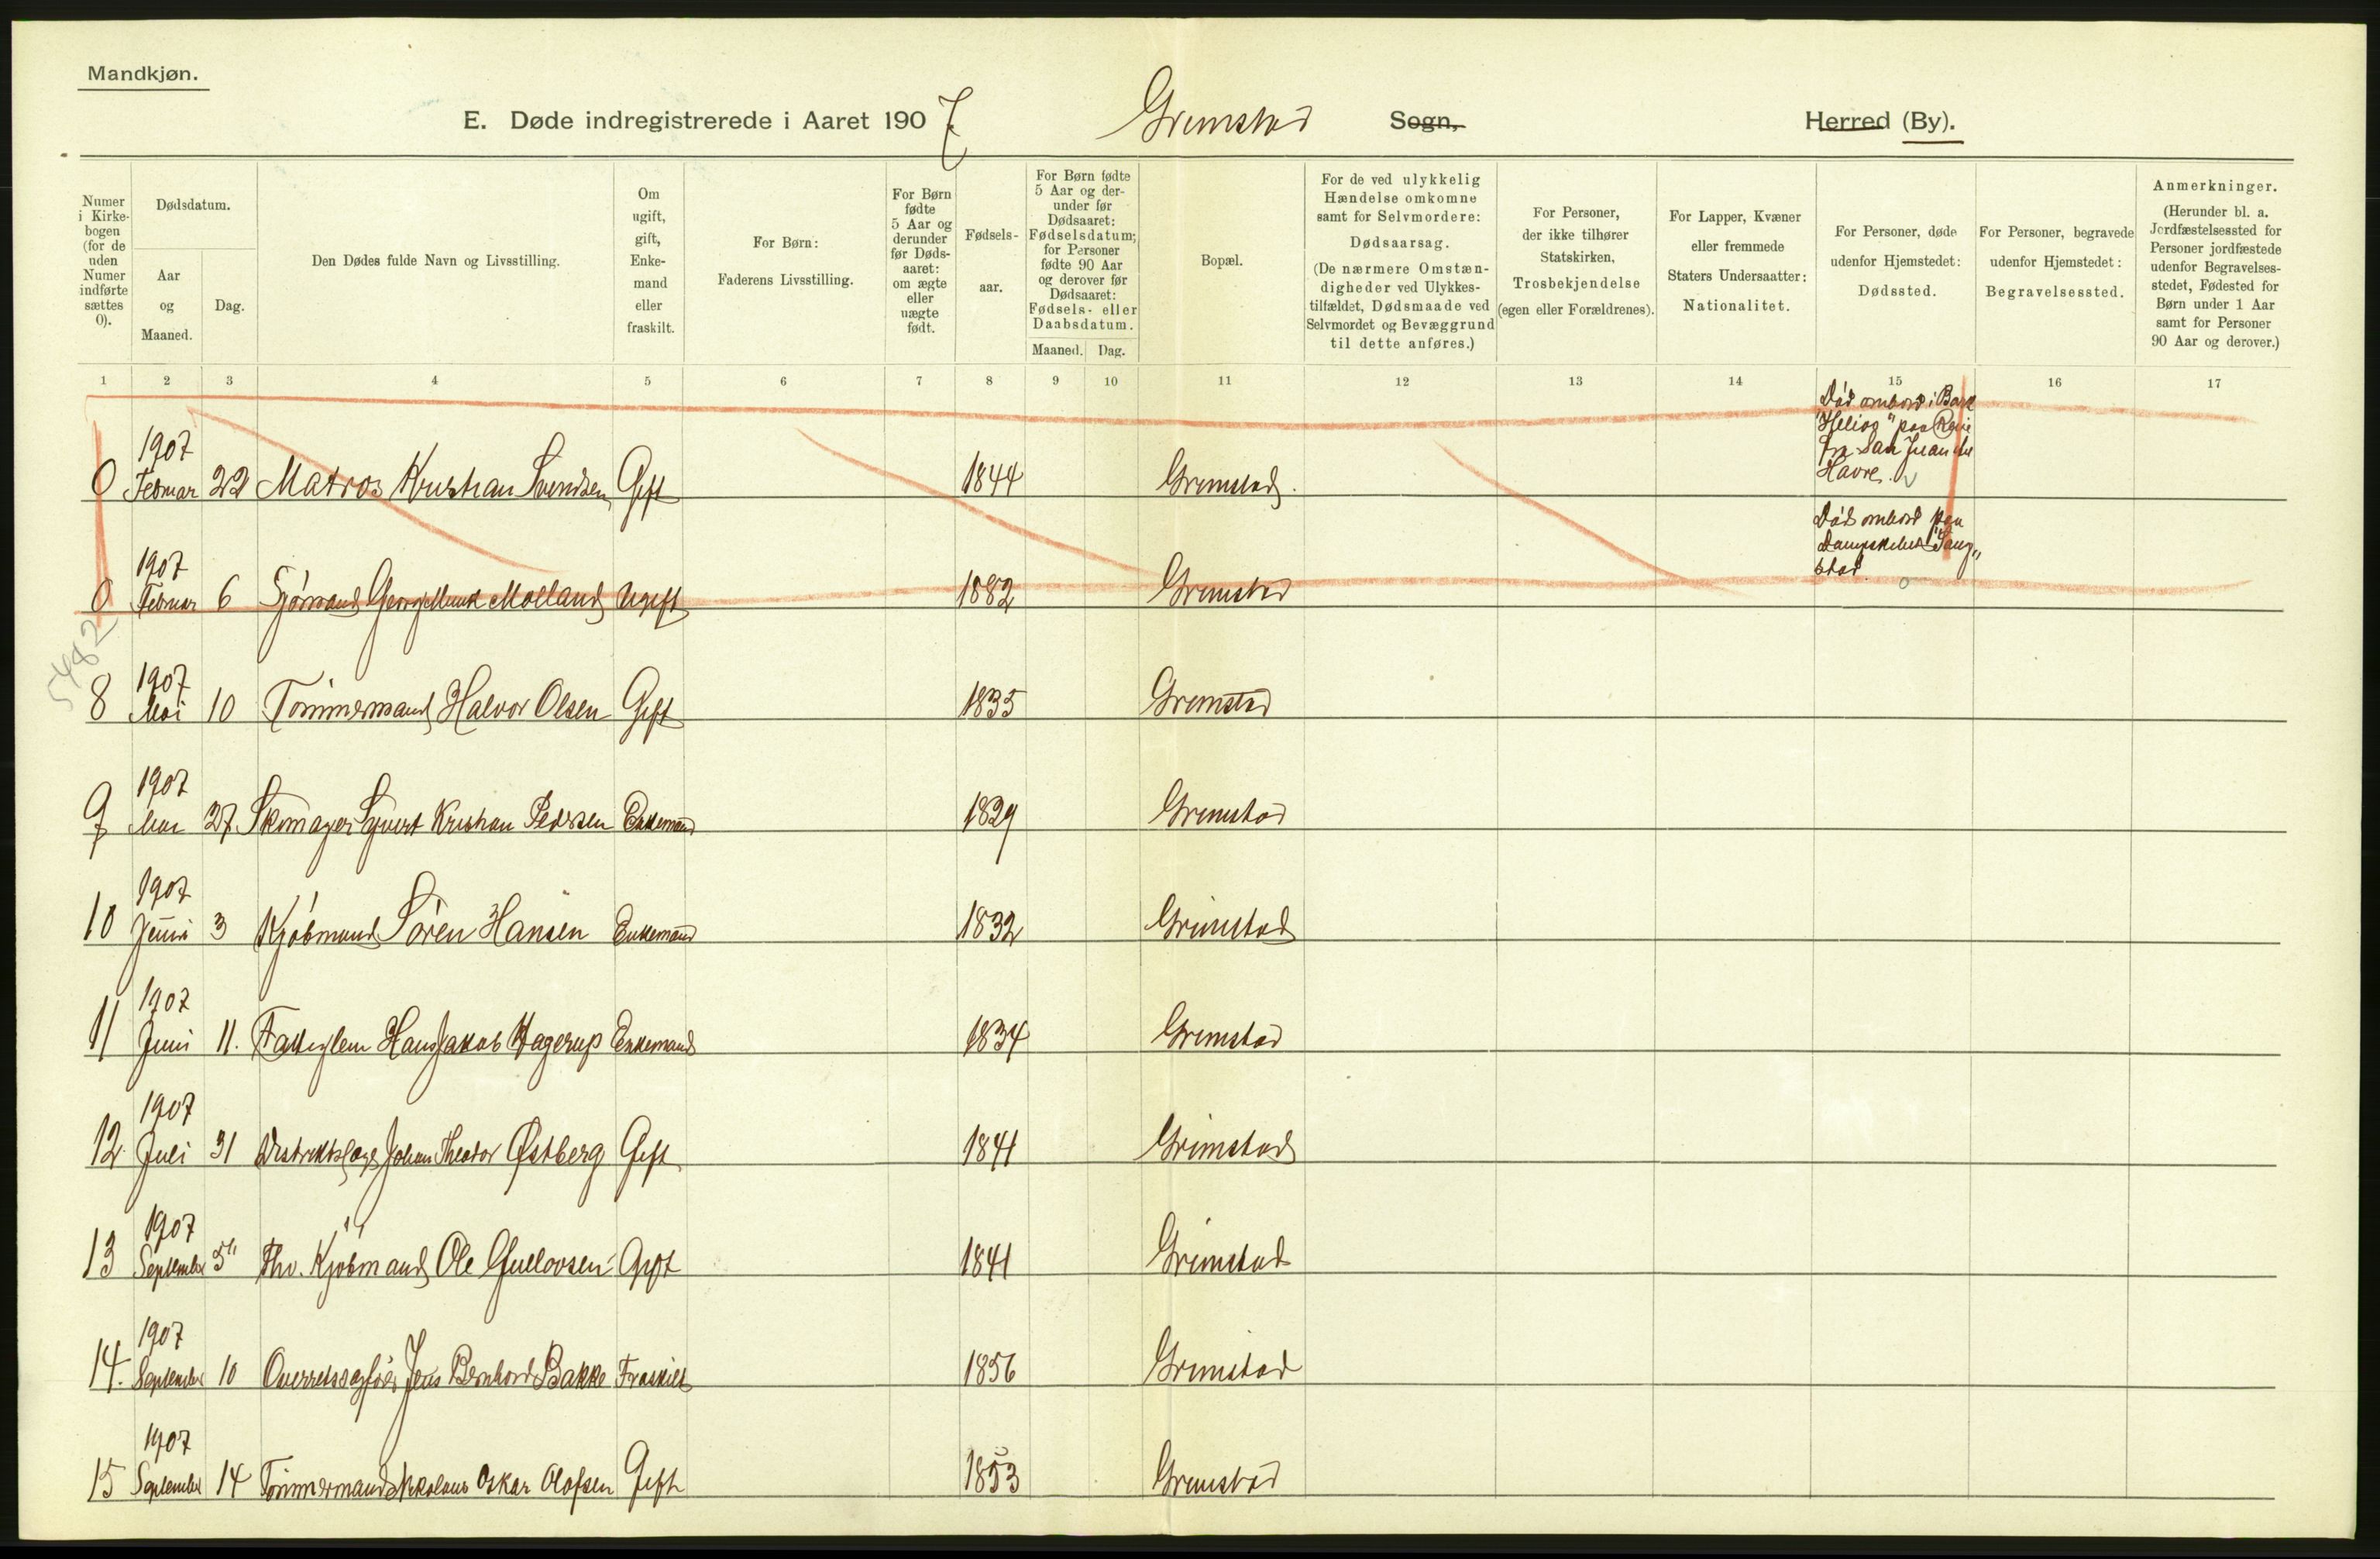 Mandkjøn.
E. Døde indregistrerede i Aaret 1907. Grimstad Sogn, Herred (By).
Numer i Kirkebogen (for de uden Numer indførte sættes 0).
Dødsdatum.
Aar og Maaned.
Dag.
Den Dødes fulde Navn og Livsstilling.
Om ugift, gift, Enkemand eller fraskilt.
For Børn: Faderens Livsstilling.
For Børn fødte 5 Aar og derunder før Dødsaaret: om ægte eller uægte født.
Fødselsaar.
For Børn fødte 5 Aar og derunder før Dødsaaret: Fødselsdatum; for Personer fødte 90 Aar og derover før Dødsaaret: Fødsels- eller Daabsdatum.
Maaned. Dag.
Bopæl.
For de ved ulykkelig Hændelse omkomne samt for Selvmordere: Dødsaarsag. (De nærmere Omstændigheder ved Ulykkestilfældet, Dødsmaade ved Selvmordet og Bevæggrund til dette anføres.)
For Personer, der ikke tilhører Statskirken, Trosbekjendelse (egen eller Forældrenes).
For Lapper, Kvæner eller fremmede Staters Undersaatter: Nationalitet.
For Personer, døde udenfor Hjemstedet: Dødssted.
For Personer, begravede udenfor Hjemstedet: Begravelsessted.
Anmerkninger. (Herunder bl. a. Jordfæstelsessted for Personer jordfæstede udenfor Begravelsesstedet, Fødested for Børn under 1 Aar samt for Personer 90 Aar og derover.)
1 2 3 4 5 6 7 8 9 10 11 12 13 14 15 16 17
0 1907 Februar 22 Matros Kristian Svendsen Gift 1844 Grimstad.
Død ombord i Bark
"Helios" paa Reise
fra San Juan til
Havre.
0 1907 Februar 6 Sjømand Georg Munk Molland Ugift 1882 Grimstad
Død ombord paa
Dampskibet "Saug-
stad
5482
8 1907 Mai 10 Tømmermand Halvor Olsen Gift 1835 Grimstad
9 1907 Mai 27. Skomager Syvert Kristian Pedersen Enkemand 1829 Grimstad
10 1907 Juni 3 Kjøbmand Søren Hansen Enkemand 1832 Grimstad
11 1907 Juni 11. Fattiglem Hans Jakob Hagerup Enkemand 1834 Grimstad
12. 1907 Juli 31 Distriktslæge Johan Theodor Østberg Gift 1841 Grimstad
13 1907 September 5 Fhv. Kjøbmand Ole Gullovsen Gift 1841 Grimstad
14. 1907 September 10 Overretssagfører Jens Bernhard Bakke Fraskilt 1856 Grimstad
15 1907 September 14 Tømmermand Nikolaus Oskar Olafsen Gift 1853 Grimstad